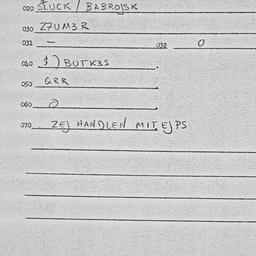 020 SLUCK / BABROJSK
030 Z7UM3R
031 — 032 0
040 $) BUTK3S
050 GRR
060 0
070 ZEJ HANDLEN MIT EJPS